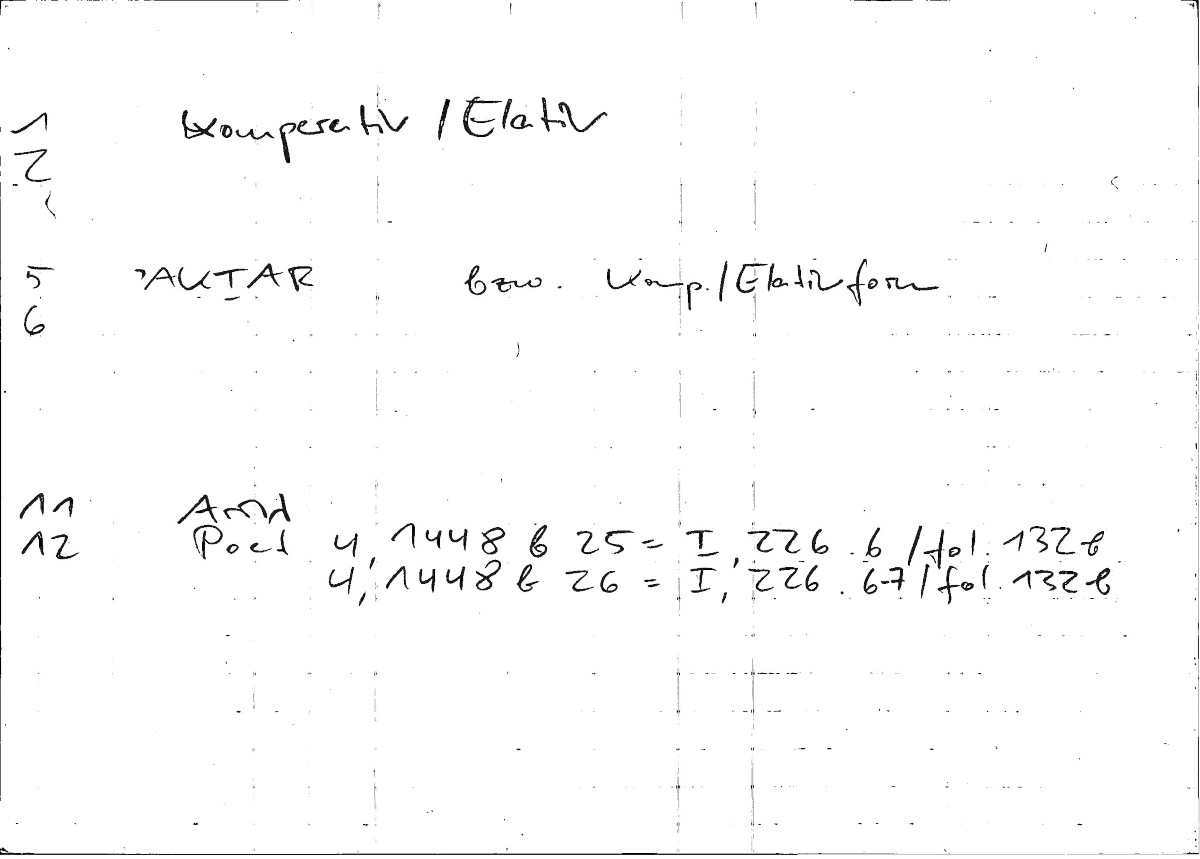 1 Komperativ / Elativ
2
5 ʾAKṮAR bzw. Komp./Elativform
6
11 Arist
12 Poet 4, 1448 b 25 = I, 226.6 / fol. 132 b
4, 1448 b 26 = I, 226.6-7 / fol. 132 b